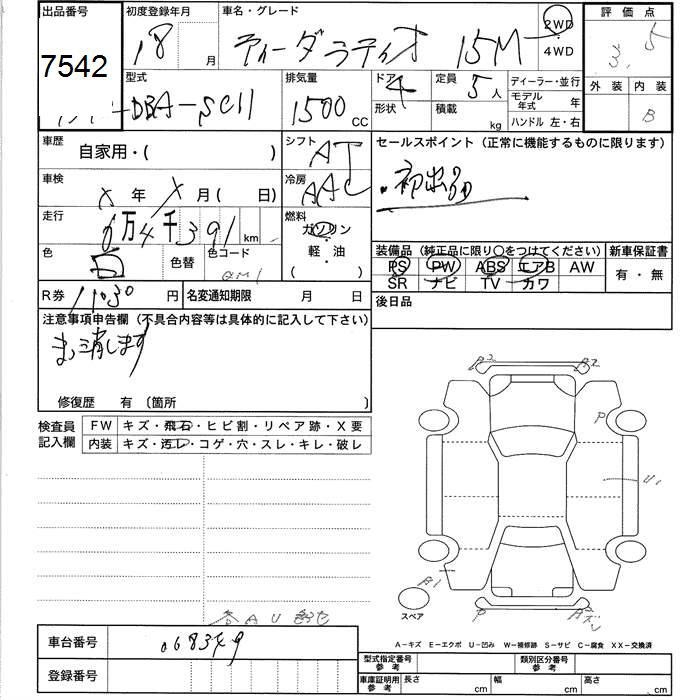 出品番号
7542
初度登録年月
18 月
車名・グレード
ティーダラティオ 15M
2WD
4WD
評価点
3.5
外装 内装
B
型式
DBA-SC11
排気量
1500 CC
ドア 4
形状
定員 5 人
積載 kg
ディーラー・並行
モデル年式 年
ハンドル 左・右
車歴
自家用・( )
シフト
AT
セールスポイント(正常に機能するものに限ります)
初出品
車検
X 年 X 月( 日)
冷房
AAC
走行
6万4千391 km
燃料
ガソリン
軽・油
( )
色
白
色替
色コード
装備品(純正品に限り○をつけてください)
PS PW ABS エアB AW
SR ナビ TV カワ
新車保証書
有・無
R券 11030 円
名変通知期限 月 日
後日品
注意事項申告欄(不具合内容等は具体的に記入して下さい)
修復歴 有 〔箇所 〕
検査員記入欄
FW キズ・飛石・ヒビ割・リペア跡・X要
内装 キズ・汚レ・コゲ・穴・スレ・キレ・破レ
A2 A2
P
U1
B1
スペア
P
A-キズ E-エクボ U-凹み W-補修跡 S-サビ C-腐食 XX-交換済
車台番号
登録番号
型式指定番号参考
類別区分番号参考
車庫証明用参考 長さ cm 幅 cm 高さ cm